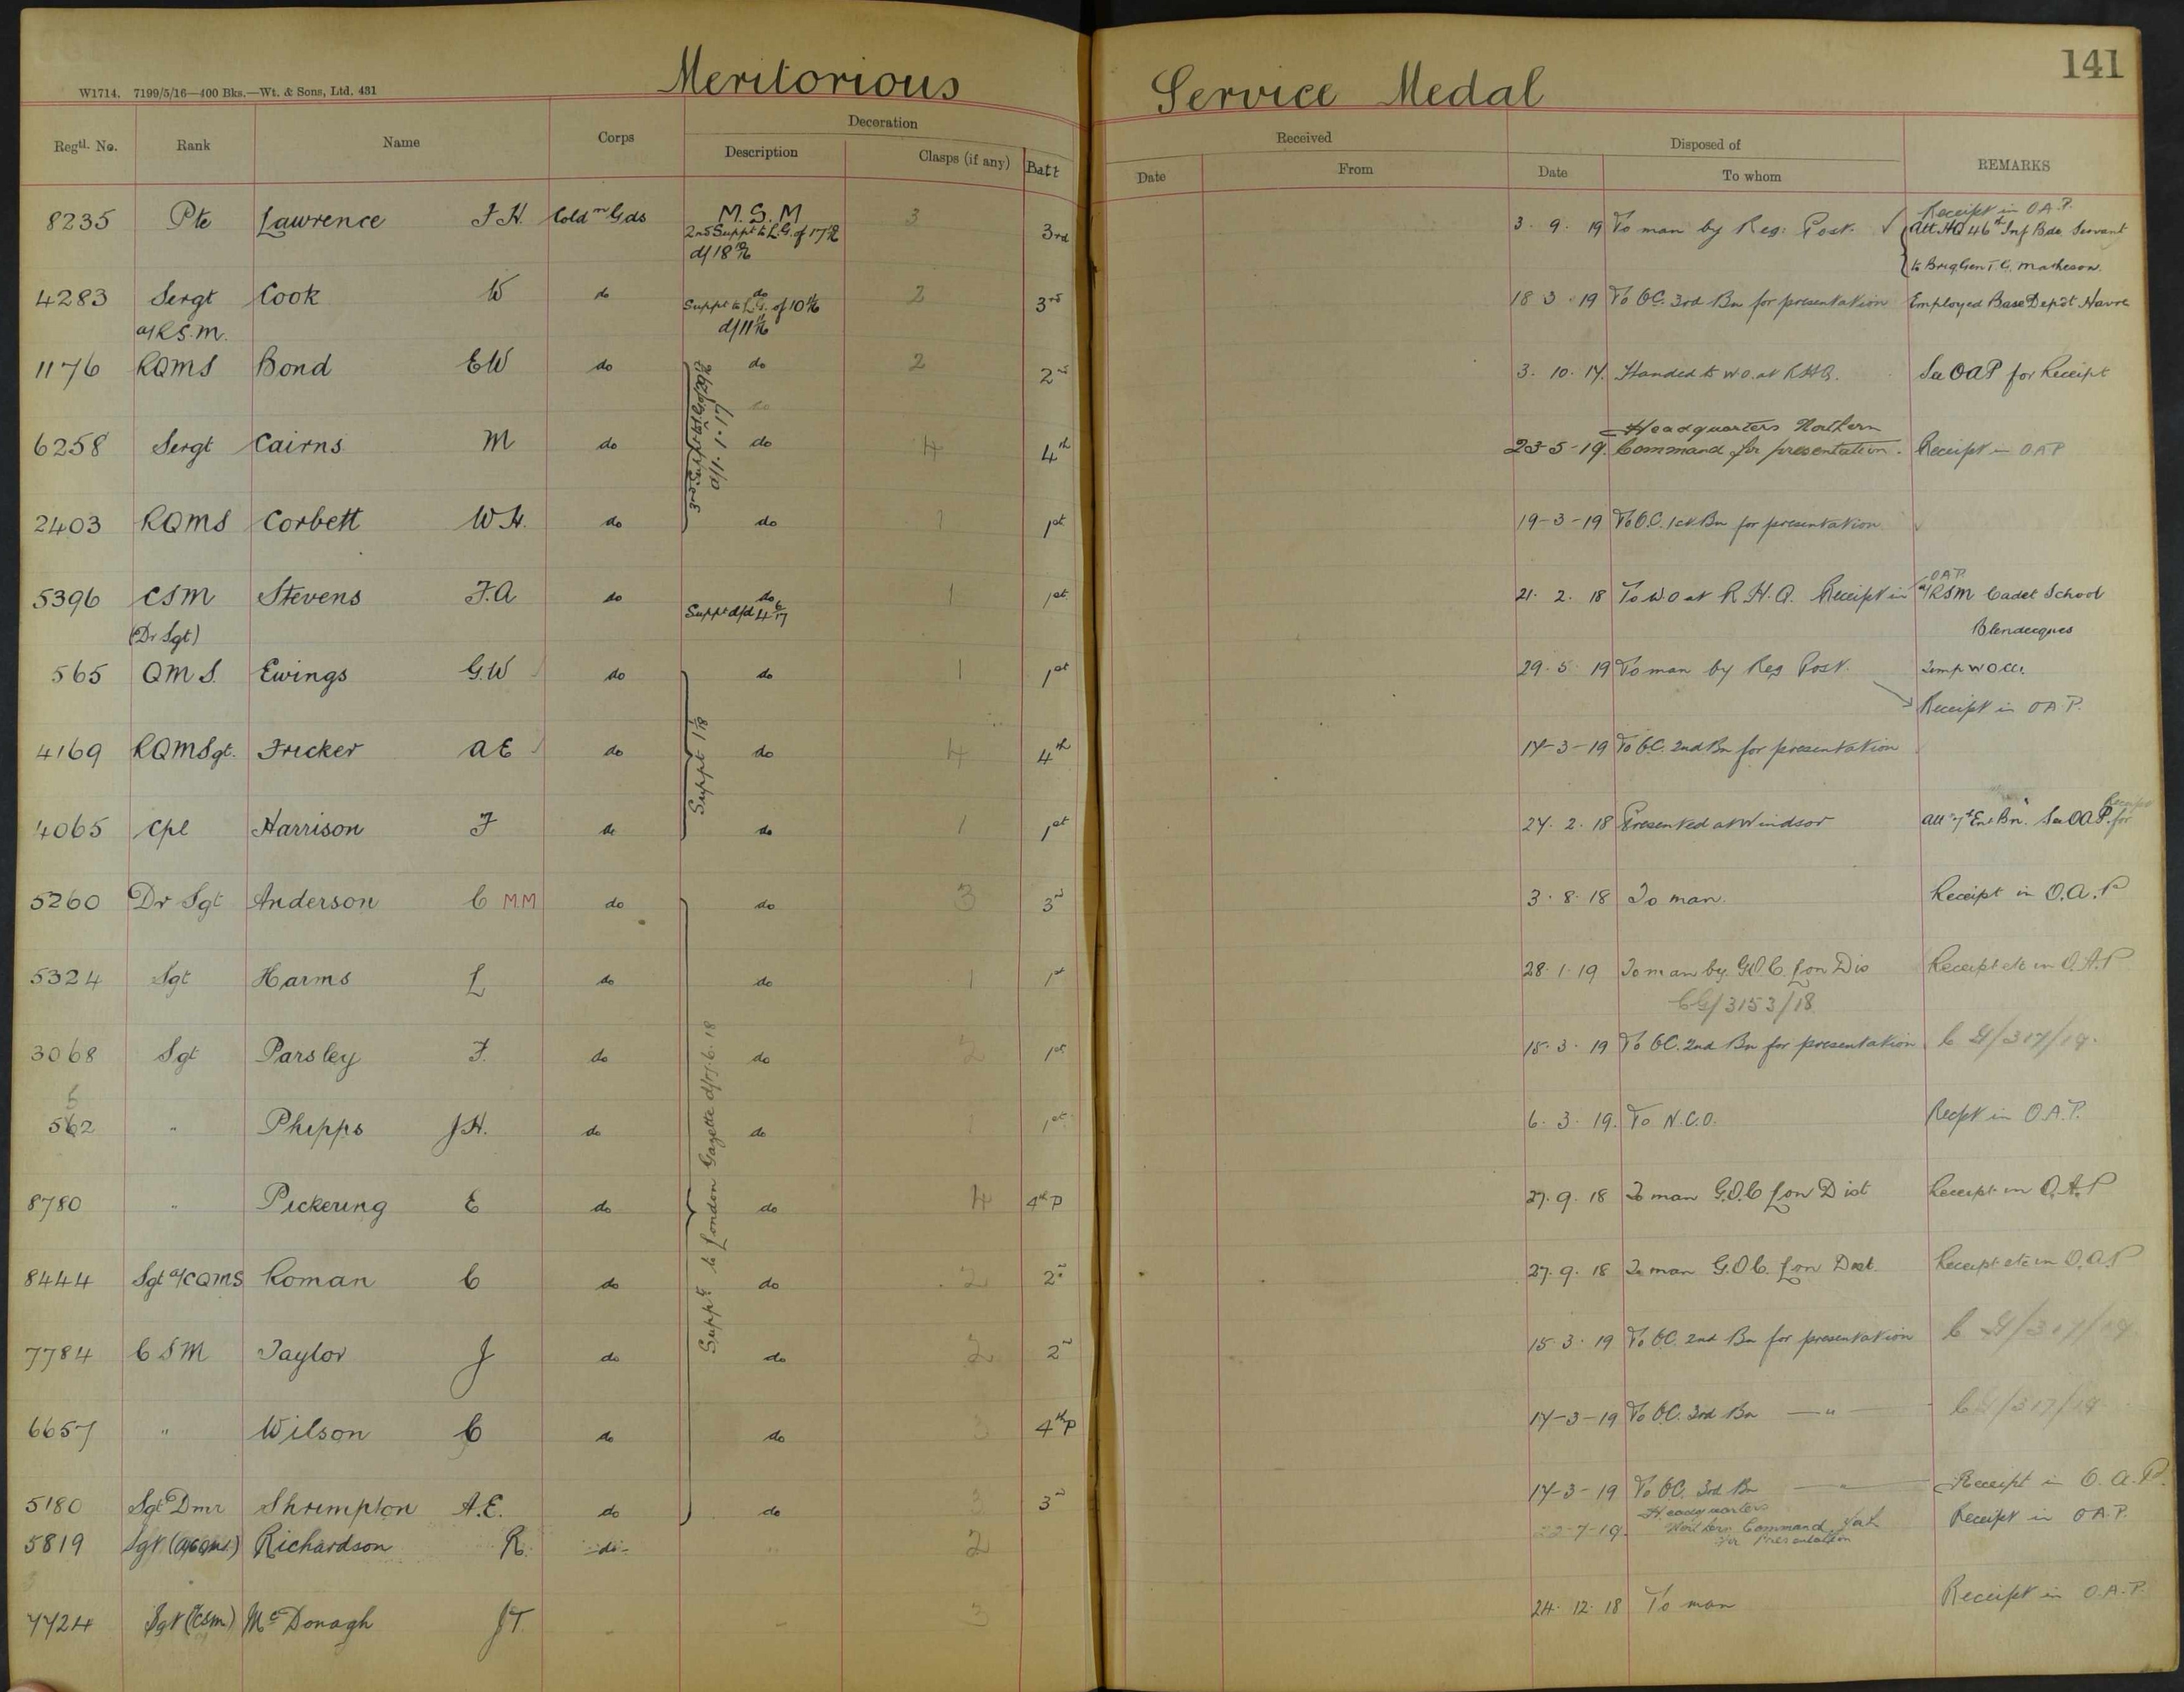 141
Meritorious Service Medal
W1714. 7199/5/16—400 Bks.—Wt. & Sons, Ltd. 431
Decoration Received Disposed of
Regtl. No. Rank Name Corps Description Clasps (if any) Batt Date From Date To whom REMARKS
8235 Pte Lawrence F.H. Coldm Gds M.S.M 3 3rd 3. 9. 19 To man by Reg: Post. Receipt in O.A.P.
2nd Suppt to L.G. of 17 d/18 Att HQ 46th Inf Bde Servant
to Brig Gen T.G. Matheson.
4283 Sergt Cook W do do 2 3rd 18 3 19 To O.C. 3rd Bn for presentation Employed Base Depôt Havre
a/R.S.M. Suppt to L.G. of 10 d/11
1176 RQMS Bond EW do do 2 2nd 3. 10. 17. Handed to W.O. at RHQ. See OAP for Receipt
do
3rd Suppt to L.G. d/1.1.17
Headquarters Northern
6258 Sergt Cairns M do do 4 4th 23-5-19. Command for presentation. Receipt in OAP
2403 RQMS Corbett W.H. do do 1 1st 19-3-19 To O.C. 1st Bn for presentation
O.A.P.
5396 CSM Stevens F.A do do 1 1st 21. 2. 18 To W.O at R.H.Q. Receipt in a/RSM Cadet School
(Dr Sgt) Suppt d/d 4/6/17 Blendecques
565 QMS. Ewings G.W do do 1 1st 29. 5. 19 To man by Reg Post. Temp W O
Receipt in OAP.
Suppt 1/1/18
4169 RQMSgt. Fricker AE do do 4 4th 17-3-19 To O.C. 2nd Bn for presentation
4065 Cpl Harrison F do do 1 1st 27. 2. 18 Presented at Windsor Att 7th Ent Bn. See OAP. for Receipt
5260 Dr Sgt Anderson C MM do do 3 3rd 3. 8. 18 To man. Receipt in O.A.P
5324 Sgt Harms L do do 1 1st 28. 1. 19 To man by G.O.C. Lon Dis Receipt etc in O.A.P
CG/3153/18
3068 Sgt Parsley F. do do 2 1st 15. 3. 19 To O.C. 2nd Bn for presentation CG/317/19.
Suppt to London Gazette d/17.6.18
6
562 " Phipps J.H. do do 1 1st 6. 3. 19. To N.C.O. Recpt in O.A.P.
8780 " Pickering E do do 4 4th P 27. 9. 18 To man G.O.C Lon Dist Receipt in O.A.P
8444 Sgt a/CQMS Roman C do do 2 2nd 27. 9. 18 To man G.O.C. Lon Dist. Receipt etc in O.A.P
7784 CSM Taylor J do do 2 2nd 15 3. 19 To O.C. 2nd Bn for presentation CG/317/19
6657 " Wilson C do do 3 4th P 17-3-19 To O.C. 3rd Bn — " — CG/317/19
5180 Sgt Dmr Shrimpton A.E. do do 3 3rd 17-3-19 To O.C. 3rd Bn — " — Receipt in O.A.P.
Headquarters
5819 Sgt (a/CQMS.) Richardson R. -do- " 2 22-7-19. Northern Command York Receipt in OAP.
for Presentation
7724 Sgt (CSM) McDonagh JT. 3 24. 12. 18 To man Receipt in O.A.P.